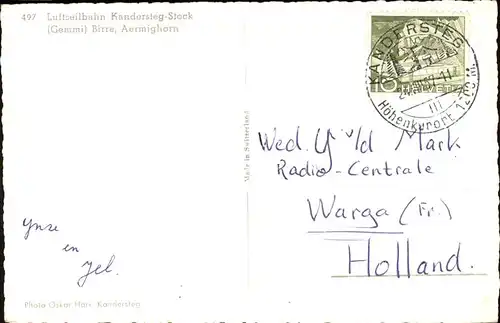 497 Luftseilbahn Kandersteg-Stock
(Gemmi) Birre, Aermighorn
KANDERSTEG
Höhenkurort 1200 M.
III
10 HELVETIA
Made in Switzerland
Wed. Y v/d Mark
Radio-Centrale
Warga (Fr.)
Holland.
Ynse
en
Jel.
Photo Oskar Hari, Kandersteg